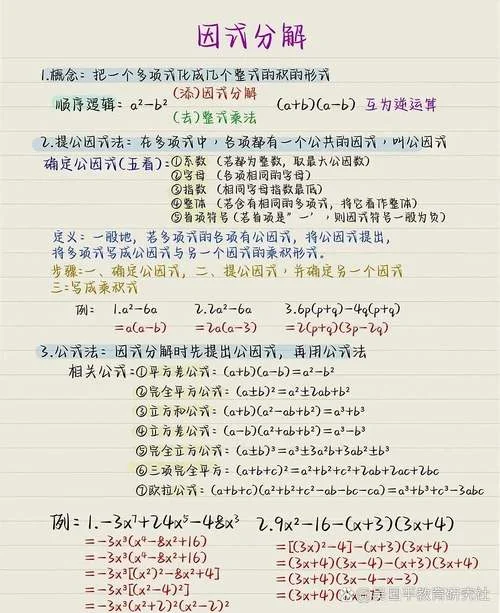 因式分解
1.概念：把一个多项式化成几个整式的积的形式
(添)因式分解
顺序逻辑：a²-b² (a+b)(a-b) 互为逆运算
(去)整式乘法
2.提公因式法：在多项式中，各项都有一个公共的因式，叫公因式
确定公因式(五看)：①系数（若都为整数，取最大公因数）
②字母（各项相同的字母）
③指数（相同字母指数最低）
④整体（若含有相同的多项式，将它看作整体）
⑤首项符号（若首项是"-"，则因式符号一般为负）
定义：一般地，若多项式的各项有公因式，将公因式提出，
将多项式写成公因式与另一个因式的乘积形式。
步骤：一、确定公因式，二、提公因式，并确定另一个因式
三：写成乘积式
例： 1.a²-6a 2.2a²-6a 3.6p(p+q)-4q(p+q)
=a(a-b) =2a(a-3) =2(p+q)(3p-2q)
3.公式法：因式分解时先提出公因式，再用公式法
相关公式：①平方差公式：(a+b)(a-b)=a²-b²
②完全平方公式：(a±b)²=a²±2ab+b²
③立方和公式：(a+b)(a²-ab+b²)=a³+b³
④立方差公式：(a-b)(a²+ab+b²)=a³-b³
⑤完全立方公式：(a±b)³=a³±3a²b+3ab²±b³
⑥三项完全平方：(a+b+c)²=a²+b²+c²+2ab+2ac+2bc
⑦欧拉公式：(a+b+c)(a²+b²+c²-ab-bc-ca)=a³+b³+c³-3abc
例：1.-3x⁷+24x⁵-48x³ 2.9x²-16-(x+3)(3x+4)
=-3x³(x⁴-8x²+16) =[(3x)²-4]-(x+3)(3x+4)
=-3x³(x⁴-8x²+16) =(3x+4)(3x-4)-(x+3)(3x+4)
=-3x³[(x²)²-8x²+4] =(3x+4)(3x-4-x-3)
=-3x³[(x²-4)²] =(3x+4)(2x-7)
=-3x³(x+2)²(x-2)²